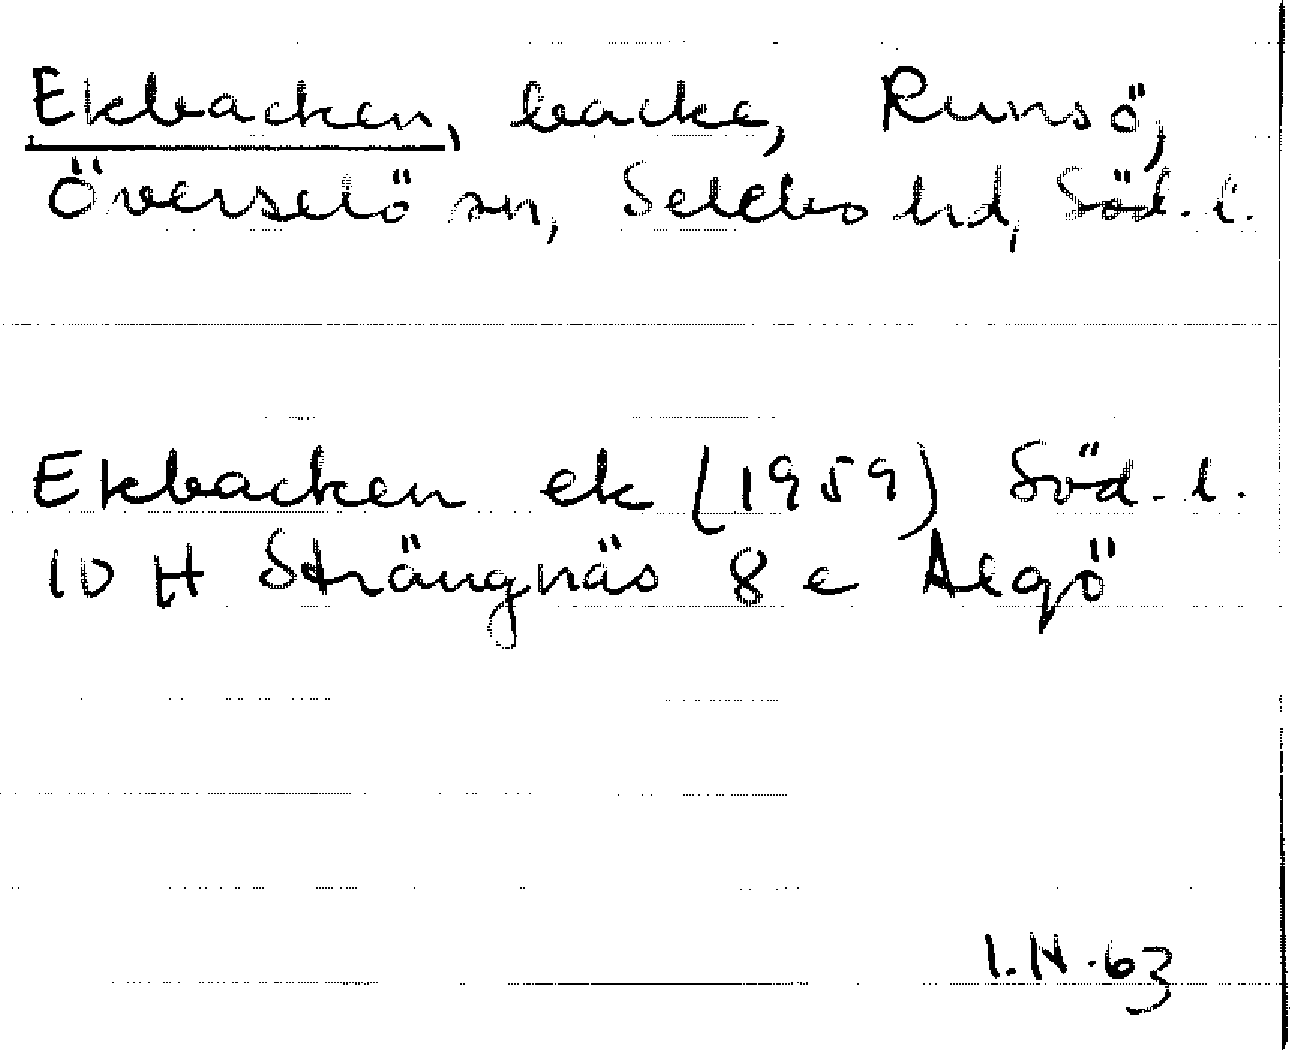 Ekbacken, backe, Runsö,
Överselö sn, Selebo hd, Söd. l.
Ekbacken ek (1959) Söd. l.
10 H Strängnäs 8 e Algö
I.N.63